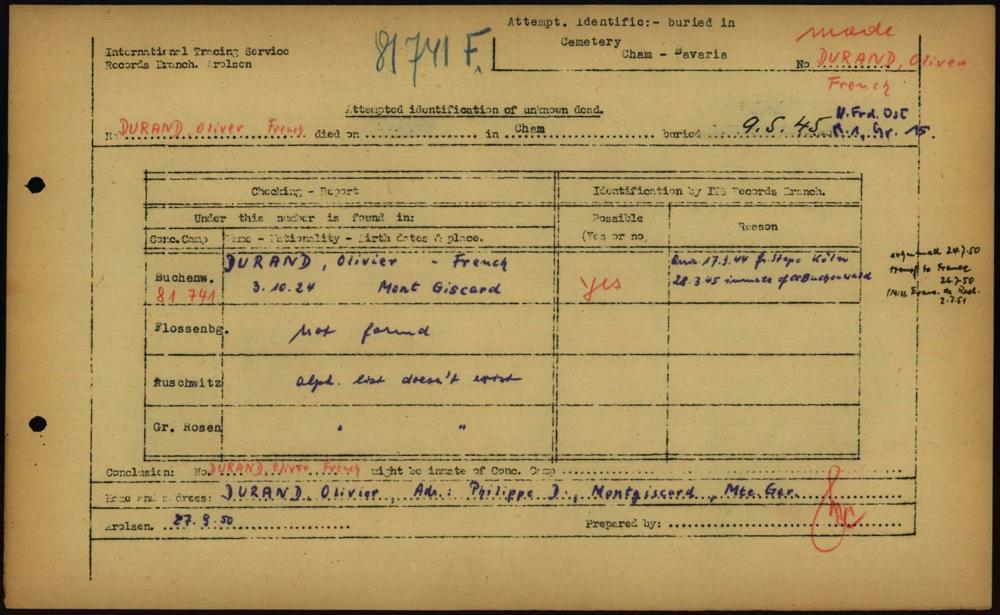 International Tracing Service
Records Branch. Arolsen
81741 F.
Attempt. Identific:- buried in
Cemetery
Cham - Bavaria
made
No DURAND, Olivier
French
Attempted identification of unknown dead.
No DURAND Oliver French died on ................ in Cham ................ buried 9.5.45
N. Frd. Ost
R.1, Gr. 15.
Checking - Report
Identification by ITS Records Branch.
Under this number is found in:
Possible
(Yes or no)
Reason
Conc.Camp
Name - Nationality - Birth dates & place.
Buchenw.
81 741
DURAND, Olivier - French
3.10.24 Mont Giscard
yes
28.3.45 inmate of CC Buchenwald
exhumated 24.7.50
transf. to France
2.7.51
Flossenbg.
Not found
Auschwitz
alph. list doesn't exist
Gr. Rosen
" "
Conclusion: No. DURAND, Oliver French might be inmate of Conc. Camp ................
Name and address: DURAND, Olivier, Adr.: Philippe D., Montgiscard, Hte. Gar.
Arolsen. 27.9.50 ................
Prepared by: ................